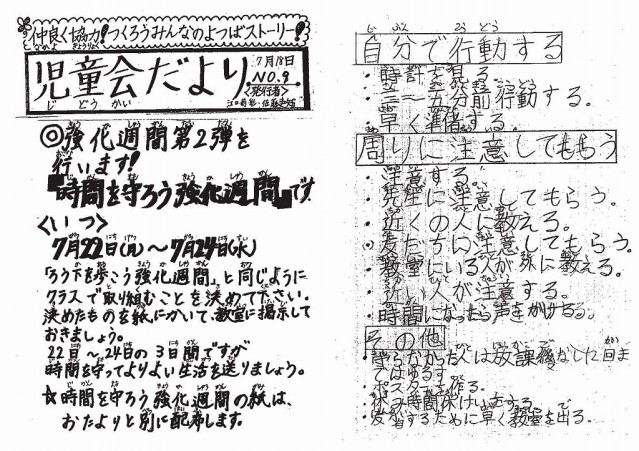 仲良く協力!つくろうみんなのよつばストーリー!
児童会だより
7月18日
NO.9
<発行者>
◎強化週間第2弾を
行います!
「時間を守ろう強化週間」です
<いつ>
7月22日(月)～7月24日(水)
「ろう下を歩こう強化週間」と同じように
クラスで取り組むことを決めて下さい。
決めたものを紙にかいて、教室に掲示して
おきましょう。
22日～24日の3日間ですが
時間を守ってよりよい生活を送りましょう。
☆時間を守ろう強化週間の紙は、
おたよりと別に配布します。
自分で行動する
・時計を見る
・二～五分前行動する。
・早く準備する。
周りに注意してもらう
・注意する。
・先生に注意してもらう。
・近くの人に教える。
・友だちに注意してもらう。
・教室にいる人が外に教える。
・近い人が注意する。
・時間になったら声をかける。
その他
・守らなかった人は放課後なし
・ポスターを作る。
・休み時間
するために早く教室を出る。